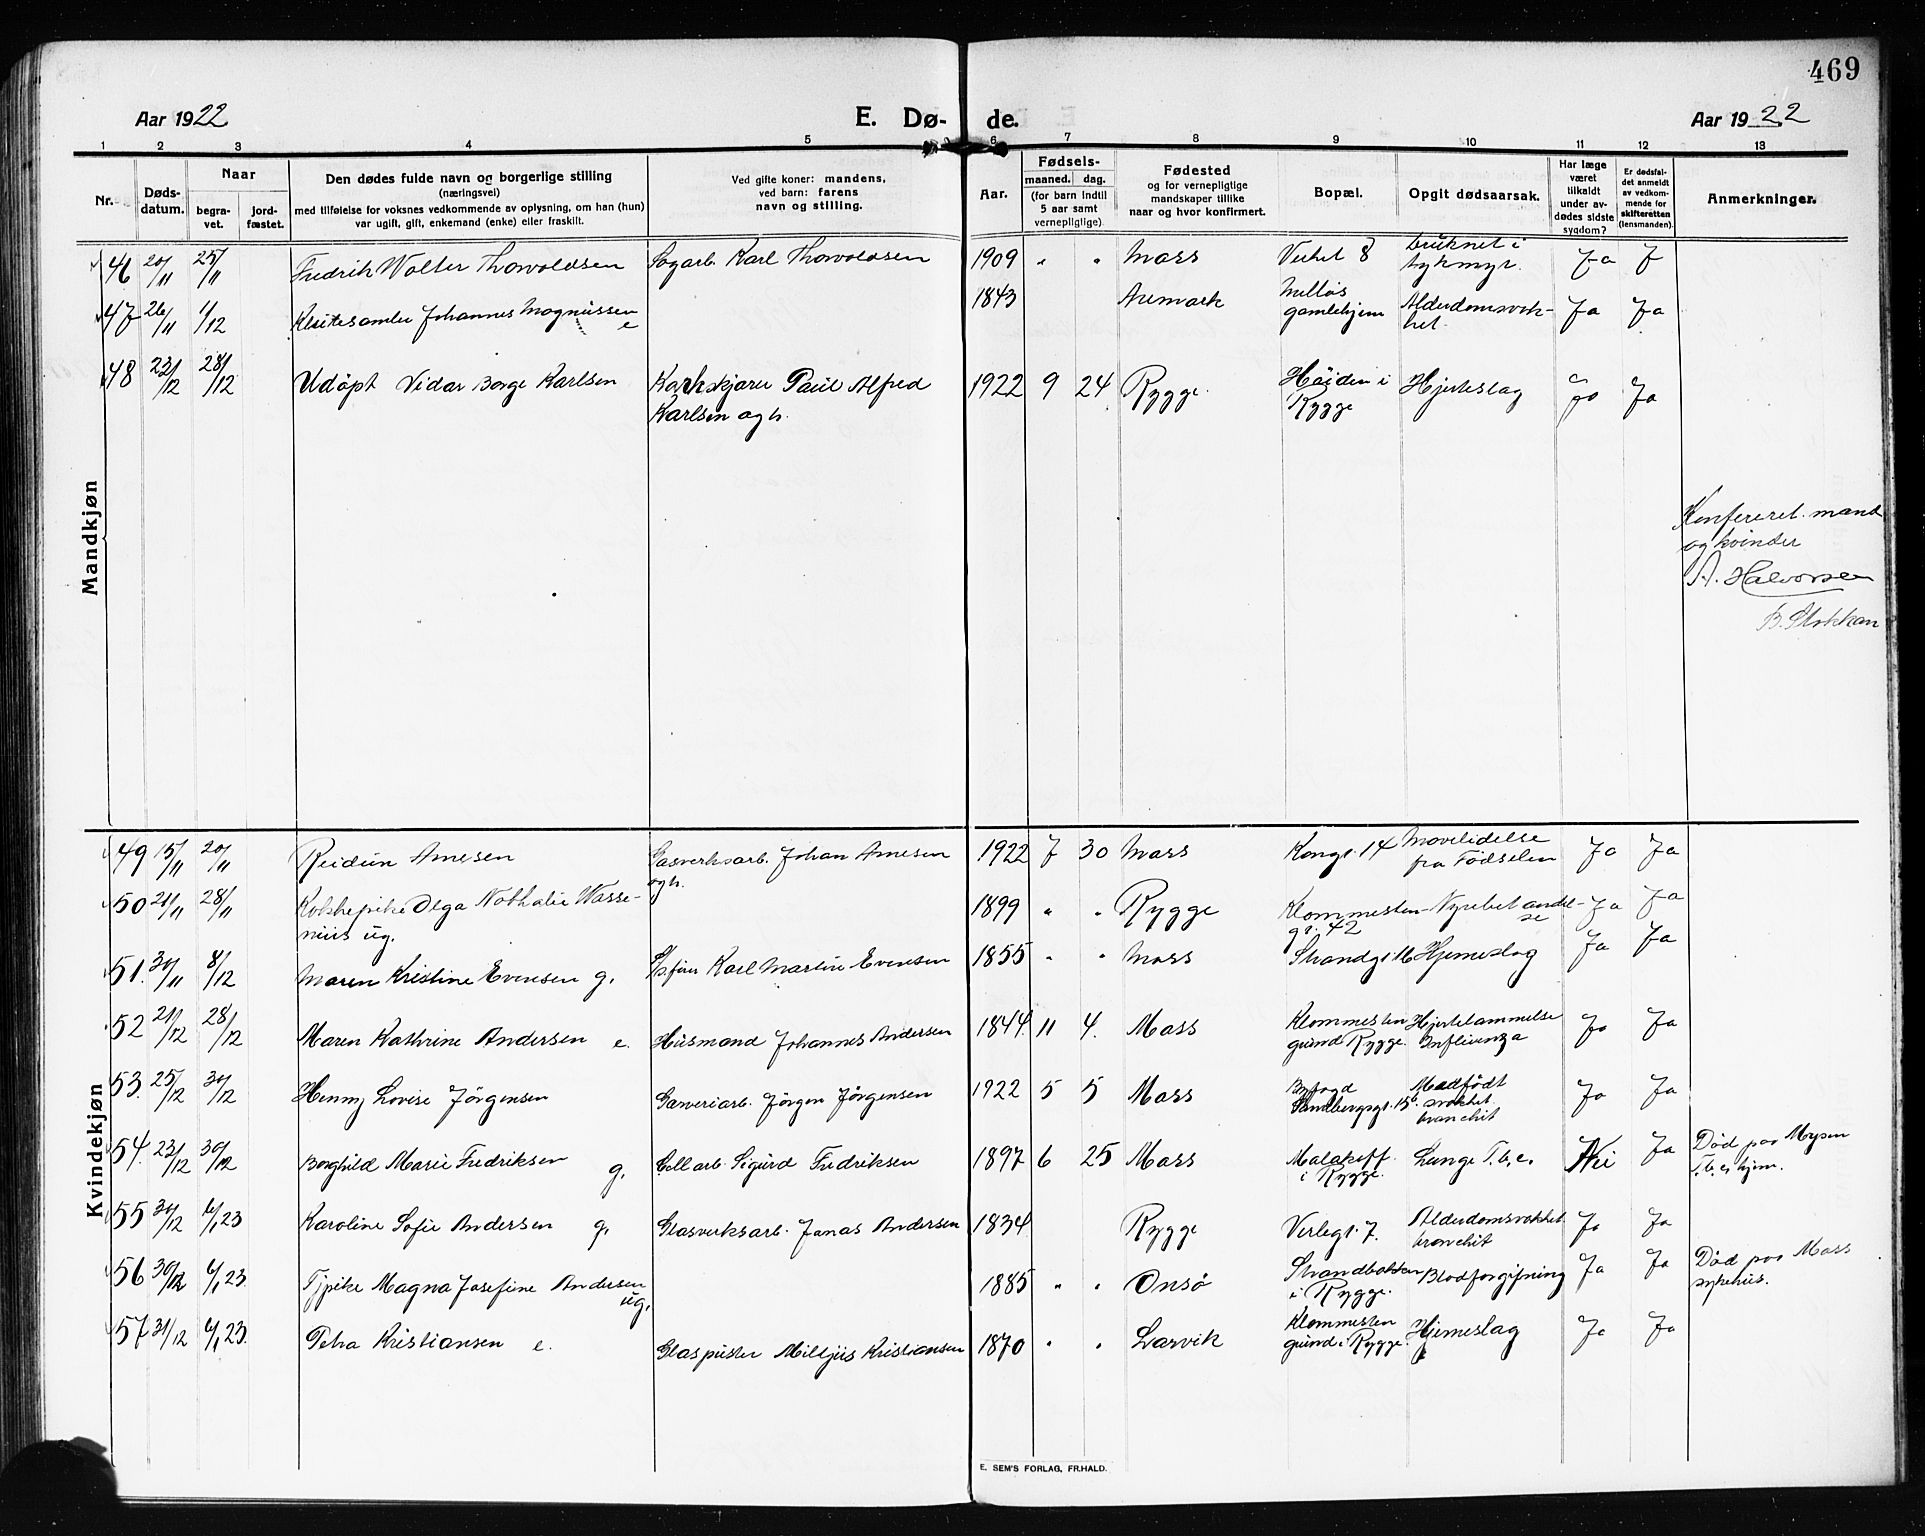 469
Aar 1922 E. Dø- de. Aar 1922
1 2 3 4 5 6 7 8 9 10 11 12 13
Nr. Døds-datum. Naar begra-vet. jord-fæstet.
Den dødes fulde navn og borgerlige stilling
(næringsvei)
med tilføielse for voksnes vedkommende av oplysning, om han (hun)
var ugift, gift, enkemand (enke) eller fraskilt.
Ved gifte koner: mandens,
ved barn: farens
navn og stilling.
Aar.
Fødsels-
maaned. dag.
(for barn indtil
5 aar samt
vernepligtige)
Fødested
og for vernepligtige
mandskaper tillike
naar og hvor konfirmert.
Bopæl.
Opgit dødsaarsak.
Har læge
været
tilkaldt
under av-
dødes sidste
sygdom?
Er dødsfal-
det anmeldt
av vedkom-
mende for
skifteretten
(lensmanden).
Anmerkninger.
Mandkjøn
46 20/11 25/11 Fredrik Walter Thorvaldsen Sagarb. Karl Thorvaldsen 1909 " " Moss Verket 8 Druknet i
Ja J
47 26/11 1/12 Klutesamler Johannes Magnussen e 1843 Aremark Melløs
gamlehjem Alderdomsvak-
het. Ja Ja
48 22/12 28/12 Udøpt Vidar Borge Karlsen Kørekjører Paul Alfred
Karlsen og h. 1922 9 24 Rygge Høiden i
Rygge Hjerteslag Ja Ja
Konfereret mand
og kvinder
A. Halvorsen
B. Stokkan
Kvindekjøn
49 15/11 20/11 Reidun Arnesen Gasverksarb. Johan Arnesen
og h. 1922 7 30 Moss Kongsgt. 14 Mavelidelse
fra Fødselen Ja Ja
50 24/11 28/11 Kokkepike Olga Nathalie Wasse-
nius ug. 1899 " " Rygge Klommesten-
gt. 42 Nyrebetændel-
se Ja Ja
51. 30/11 8/12 Maren Kristine Evensen g. Karl Martin Evensen 1855 " " Moss Strandgt. 16 Hjerneslag Ja Ja
52 21/12 28/12 Maren Kathrine Andersen e. Husmand Johannes Andersen 1844. 11 4. Moss Klommesten
grund Rygge. Hjertelammelse
Influenza Ja Ja
53. 25/12 30/12 Henny Lovise Jørgensen Garveriarb. Jørgen Jørgensen 1922 5 5 Moss Byfogd
Sandbergsgt. 15 b. Medfødt
svakhet.
bronchit Ja Ja
54. 23/12 30/12 Borghild Marie Fredriksen g. Cell arb. Sigurd Fredriksen 1897 6 25 Moss Malakoff
i Rygge. Lunge T.b.c. Nei Ja Død paa Mysen
T.b.c. hjem.
55 30/12 6/1 23 Karoline Sofie Andersen g. Glasverksarb. Jonas Andersen 1834 Rygge Verlegt. 7. Alderdomsvakhet.
bronchit Ja Ja
56 30/12 6/1 23. Tjpike Magna Josefine Andersen
ug. 1885 " " Onsø Strandbakken
i Rygge. Blodforgiftning Ja Ja Død paa Moss
sykehus.
57 31/12 6/1 23. Petra Kristiansen e. Glaspuster Kristiansen 1870 " " Larvik Klommesten
grund i Rygge. Hjerneslag Ja Ja
E. SEM'S FORLAG, FR.HALD.